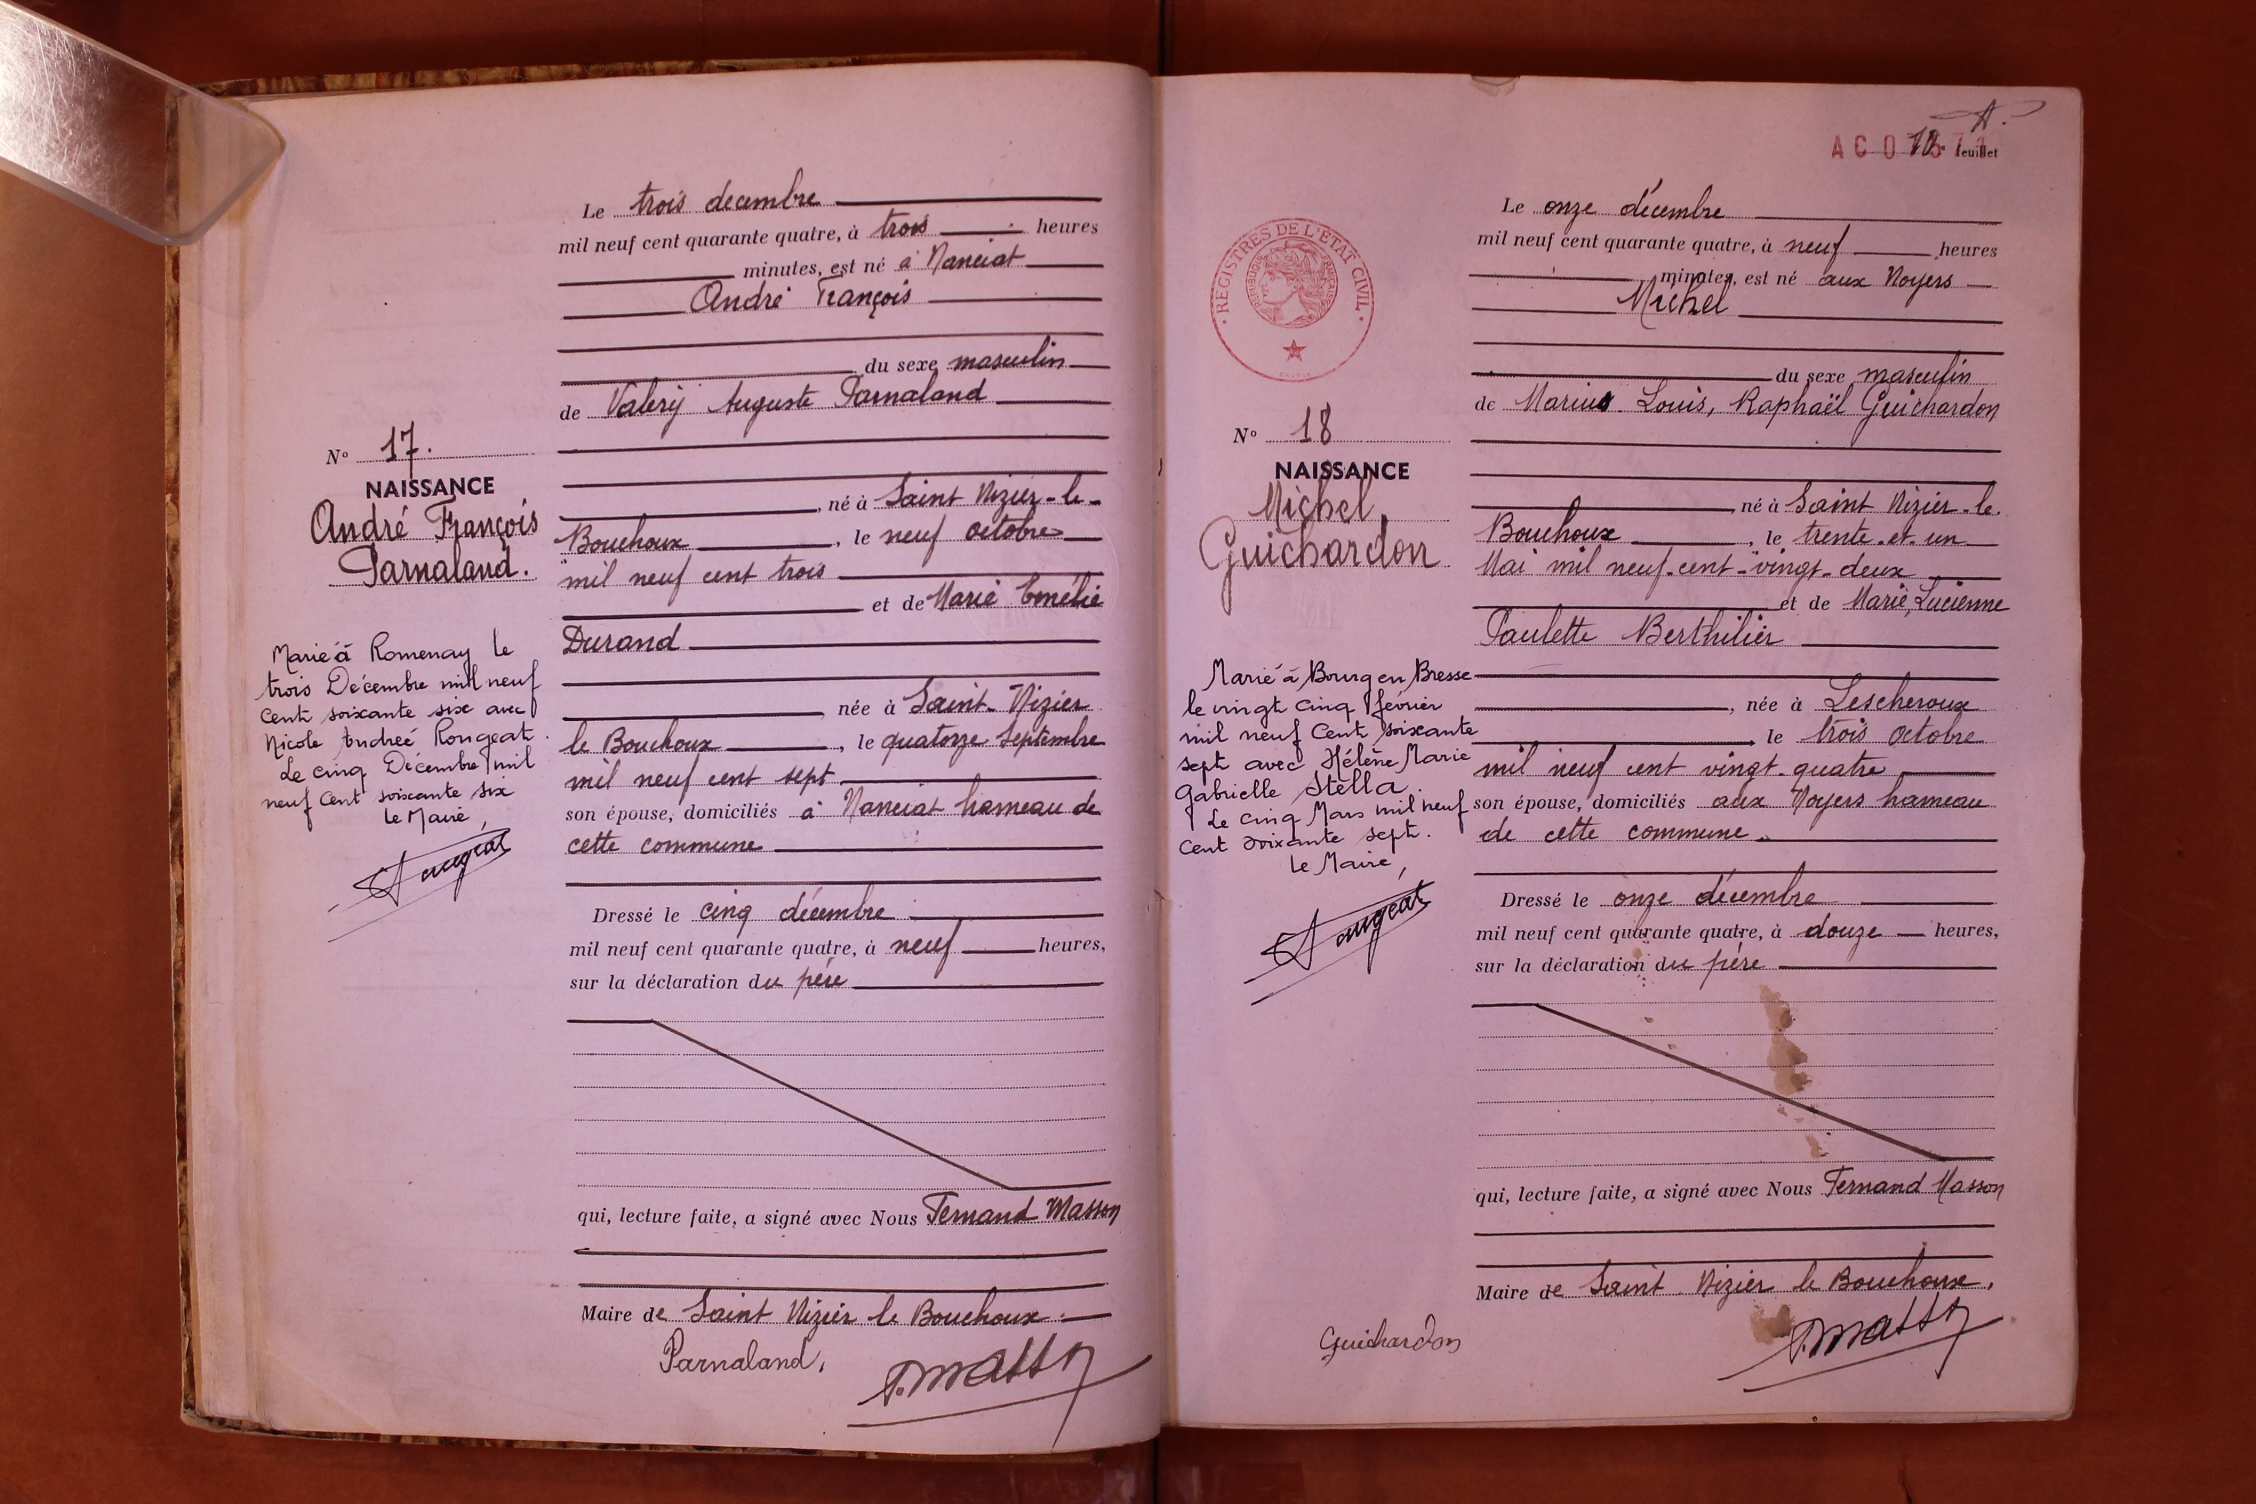 N° 17.
NAISSANCE
André François
Parnaland.
Marié à Romenay le
trois Décembre mil neuf
cent soixante six avec
Nicole Andreé Rongeat.
Le cinq Décembre mil
neuf cent soixante six
le Maire,
Le trois decembre
mil neuf cent quarante quatre, à trois heures
minutes, est né à Nanciat
André François
du sexe masculin
de Valéry Auguste Parnaland
né à Saint Nizier-le-
Bouchoux, le neuf octobre
mil neuf cent trois
et de Marie Emélie
Durand
née à Saint-Nizier
le Bouchoux, le quatorze Septembre
mil neuf cent sept
son épouse, domiciliés à Nanciat hameau de
cette commune
Dressé le cinq décembre
mil neuf cent quarante quatre, à neuf heures,
sur la déclaration du père
qui, lecture faite, a signé avec Nous Fernand Masson
Maire de Saint Nizier-le Bouchoux.
Parnaland,
F. Masson
A C 0
10e feuillet
REGISTRES DE L'ETAT CIVIL
N° 18
NAISSANCE
Michel
Guichardon
Marié à Bourg en Bresse
le vingt cinq février
mil neuf Cent soixante
sept avec Hélène Marie
Gabrielle Stella.
Le cinq Mars mil neuf
Cent soixante sept.
le Maire,
Le onze décembre
mil neuf cent quarante quatre, à neuf heures
minutes, est né aux Noyers
Michel
du sexe masculin
de Marius Louis, Raphaël Guichardon
né à Saint Nizier-le-
Bouchoux, le trente-et-un
Mai mil neuf-cent-vingt-deux
et de Marie, Lucienne
Paulette Berthilier
, née à Lescheroux
le trois octobre
mil neuf cent vingt-quatre
son épouse, domiciliés aux Noyers hameau
de cette commune.
Dressé le onze décembre
mil neuf cent quarante quatre, à douze heures,
sur la déclaration du père
qui, lecture faite, a signé avec Nous Fernand Masson
Maire de Saint Nizier le Bouchoux.
Guichardon
F. Masson